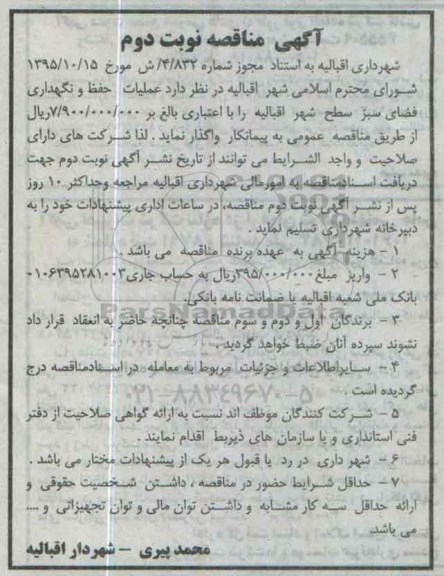 آگهی مناقصه نوبت دوم
شهرداری اقبالیه به استناد مجوز شماره ۴/۸۳۲/ ش مورخ ۱۳۹۵/۱۰/۱۵
شورای محترم اسلامی شهر اقبالیه در نظر دارد عملیات حفظ و نگهداری
فضای سبز سطح شهر اقبالیه را با اعتباری بالغ بر ۷/۹۰۰/۰۰۰/۰۰۰ریال
از طریق مناقصه عمومی به پیمانکار واگذار نماید . لذا شرکت های دارای
صلاحیت و واجد الشرایط می توانند از تاریخ نشر آگهی نوبت دوم جهت
دریافت اسنادمناقصه به امورمالی شهرداری اقبالیه مراجعه وحداکثر ۱۰ روز
پس از نشر آگهی نوبت دوم مناقصه، در ساعات اداری پیشنهادات خود را به
دبیرخانه شهرداری تسلیم نماید .
۱ – هزینه آگهی به عهده برنده مناقصه می باشد .
۲ – واریز مبلغ ۳۹۵/۰۰۰/۰۰۰ریال به حساب جاری۰۱۰۶۳۹۵۲۸۱۰۰۳
بانک ملی شعبه اقبالیه یا ضمانت نامه بانکی.
۳ – برندگان اول و دوم و سوم مناقصه چنانچه حاضر به انعقاد قرار داد
نشوند سپرده آنان ضبط خواهد گردید .
۴ – سایراطلاعات و جزئیات مربوط به معامله در اسنادمناقصه درج
گردیده است .
۵ – شرکت کنندگان موظف اند نسبت به ارائه گواهی صلاحیت از دفتر
فنی استانداری و یا سازمان های ذیربط اقدام نمایند .
۶ – شهر داری در رد یا قبول هر یک از پیشنهادات مختار می باشد .
۷ – حداقل شرایط حضور در مناقصه ، داشتن شخصیت حقوقی و
ارائه حداقل سه کار مشابه و داشتن توان مالی و توان تجهیزاتی و ....
می باشد.
محمد پیری – شهردار اقبالیه
ParsNamadData
۰۲۱-۸۸۳۴۹۶۷۰-۵